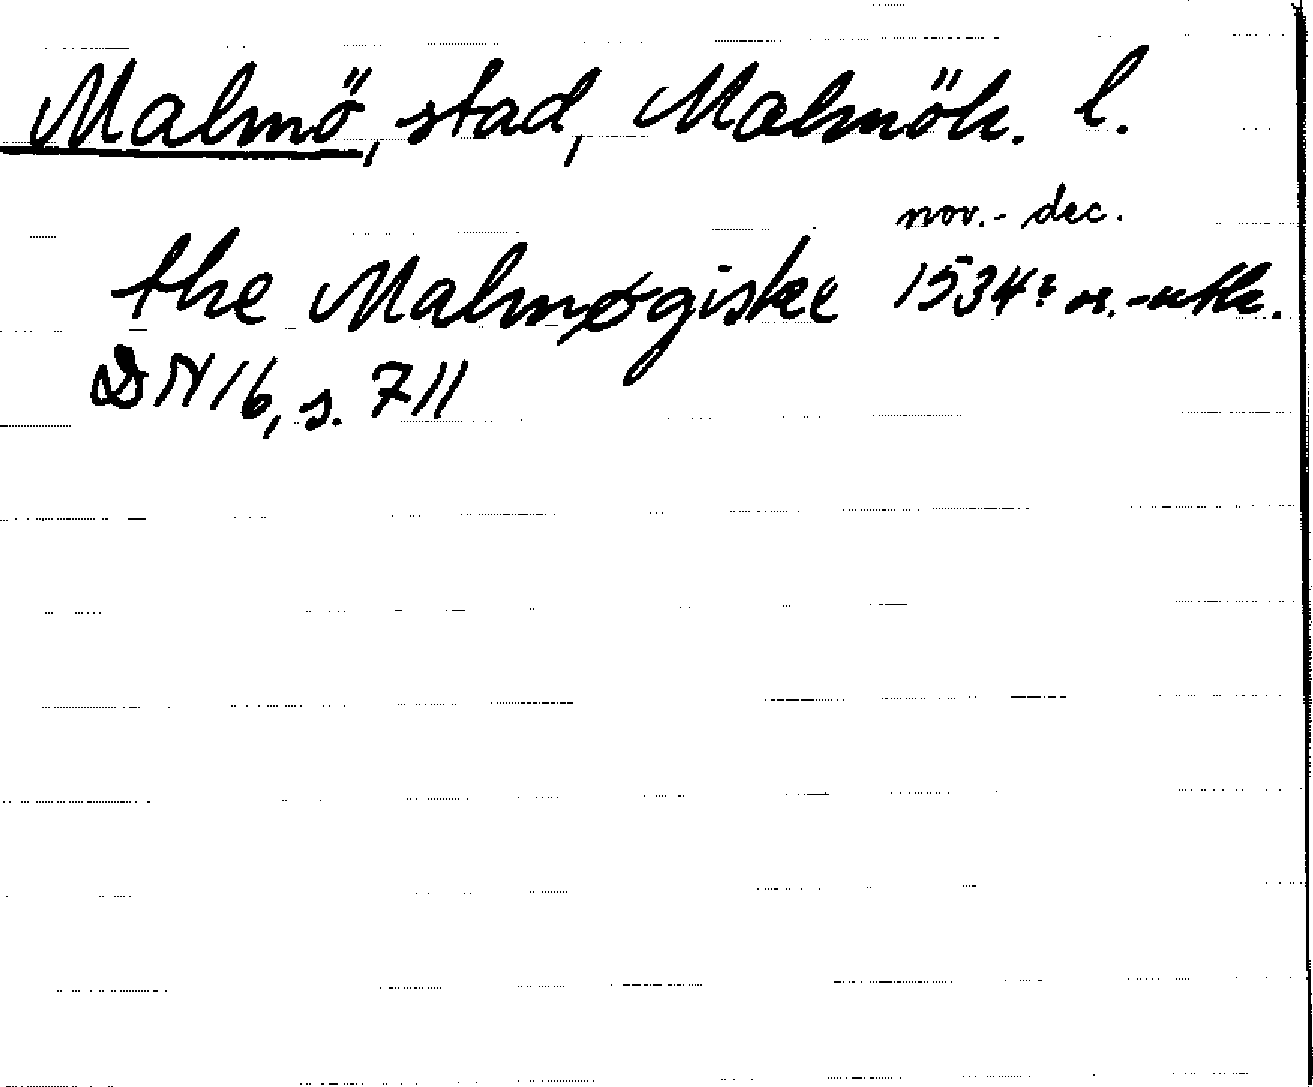 Malmö, stad, Malmöh. l.
nov.- dec.
the Malmøgiske 1534? or.-utk.
DN 16, s. 711